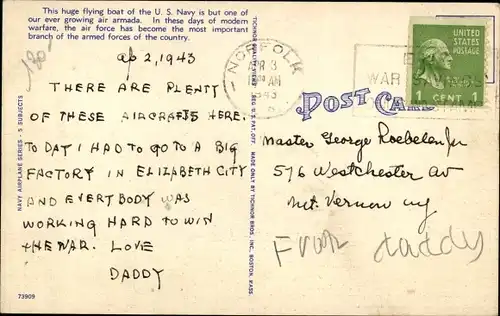 This huge flying boat of the U. S. Navy is but one of
our ever growing air armada. In these days of modern
warfare, the air force has become the most important
branch of the armed forces of the country.
ap 2, 1943
THERE ARE PLENTY
OF THESE AIRCRAFTS HERE.
TO DAY I HAD TO GO TO A BIG
FACTORY IN ELIZABETH CITY
AND EVERYBODY WAS
WORKING HARD TO WIN
THE WAR. LOVE
DADDY
73909
NAVY AIRPLANE SERIES - 5 SUBJECTS
MADE ONLY BY TICHNOR BROS. INC., BOSTON, MASS.
NORFOLK
APR 3
AM
1943
WAR
UNITED
STATES
POSTAGE
1 CENT 1
POST CARD
Master George Roebelen Jr
576 Westchester av
Mt. Vernon ny
From daddy